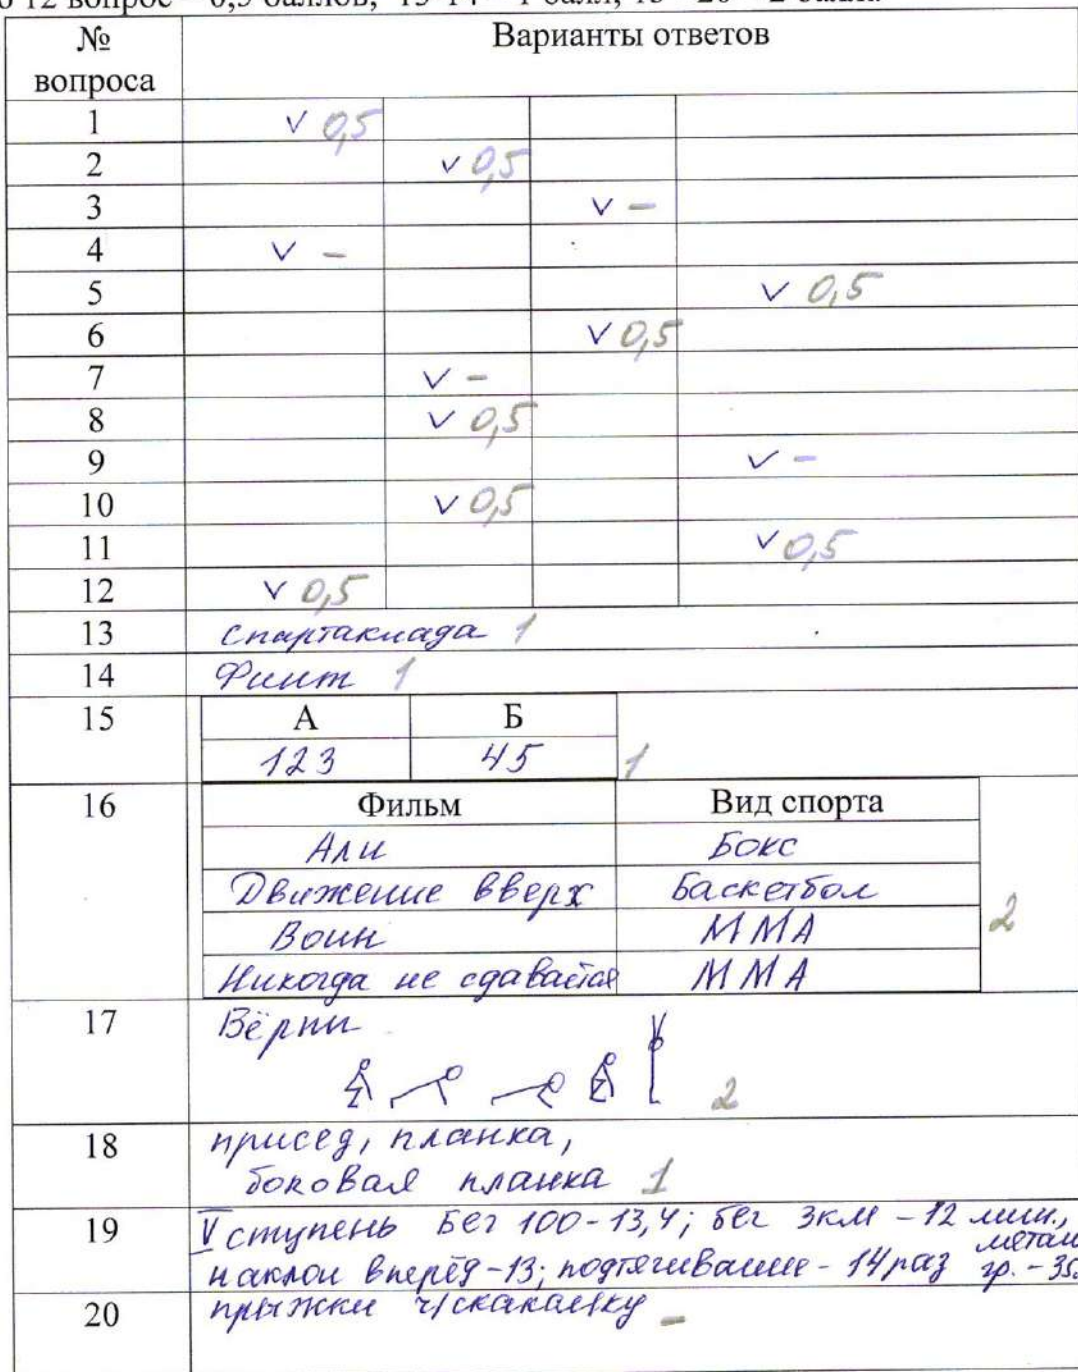 12 вопрос – 0,5 баллов, 13-14 – 1 балл, 15 – 20 – 2 балла
№ вопроса Варианты ответов
1 v 0,5
2 v 0,5
3 v –
4 v –
5 v 0,5
6 v 0,5
7 v –
8 v 0,5
9 v –
10 v 0,5
11 v 0,5
12 v 0,5
13 Спартакиада 1
14 Финт 1
15 А Б
123 45 1
16 Фильм Вид спорта
Али Бокс
Движение вверх Баскетбол
Воин ММА
Никогда не сдавайся ММА
2
17 Бёрпи
2
18 присед, планка,
боковая планка 1
19 V ступень Бег 100-13,4; бег 3км – 12 мин., метан
наклон вперёд-13; подтягивание - 14 раз гр. - 35
20 прыжки ч/скакалку –